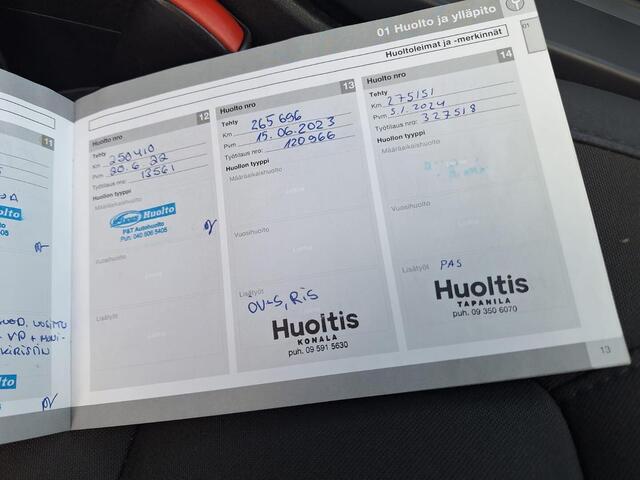 01 Huolto ja ylläpito
01
Huoltoleimat ja -merkinnät
11
Huolto
KIRISTÄN
Huolto nro 12
Tehty
Km 250410
Pvm 20.6.22
Työtilaus nro: 13561
Huollon tyyppi
Määräaikaishuolto
Huolto
P&T Autohuolto
Puh. 040 506 5405
Vuosihuolto
Lisätyöt
Huolto nro 13
Tehty
Km 265696
Pvm 15.06.2023
Työtilaus nro: 120966
Huollon tyyppi
Määräaikaishuolto
Vuosihuolto
Lisätyöt
ÖV+S, RiS
Huoltis
KONALA
puh. 09 591 5630
Huolto nro 14
Tehty
Km 275151
Pvm 5.1.2024
Työtilaus nro: 327518
Huollon tyyppi
Määräaikaishuolto
Vuosihuolto
Lisätyöt PAS
Huoltis
TAPANILA
puh. 09 350 6070
13